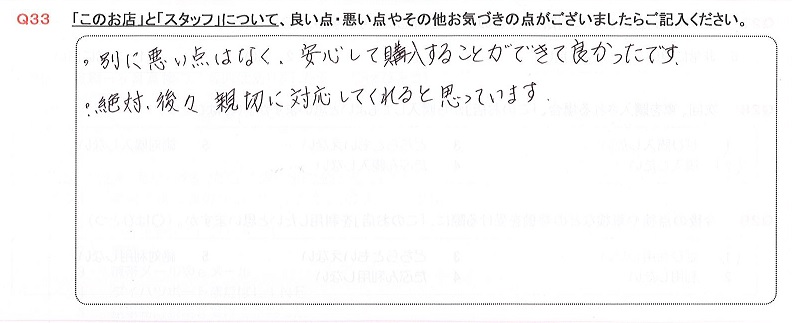 Q33 「このお店」と「スタッフ」について、良い点・悪い点やその他お気づきの点がございましたらご記入ください。
。別に悪い点はなく、安心して購入することができて良かったです。
。絶対、後々 親切に対応してくれると思っています。